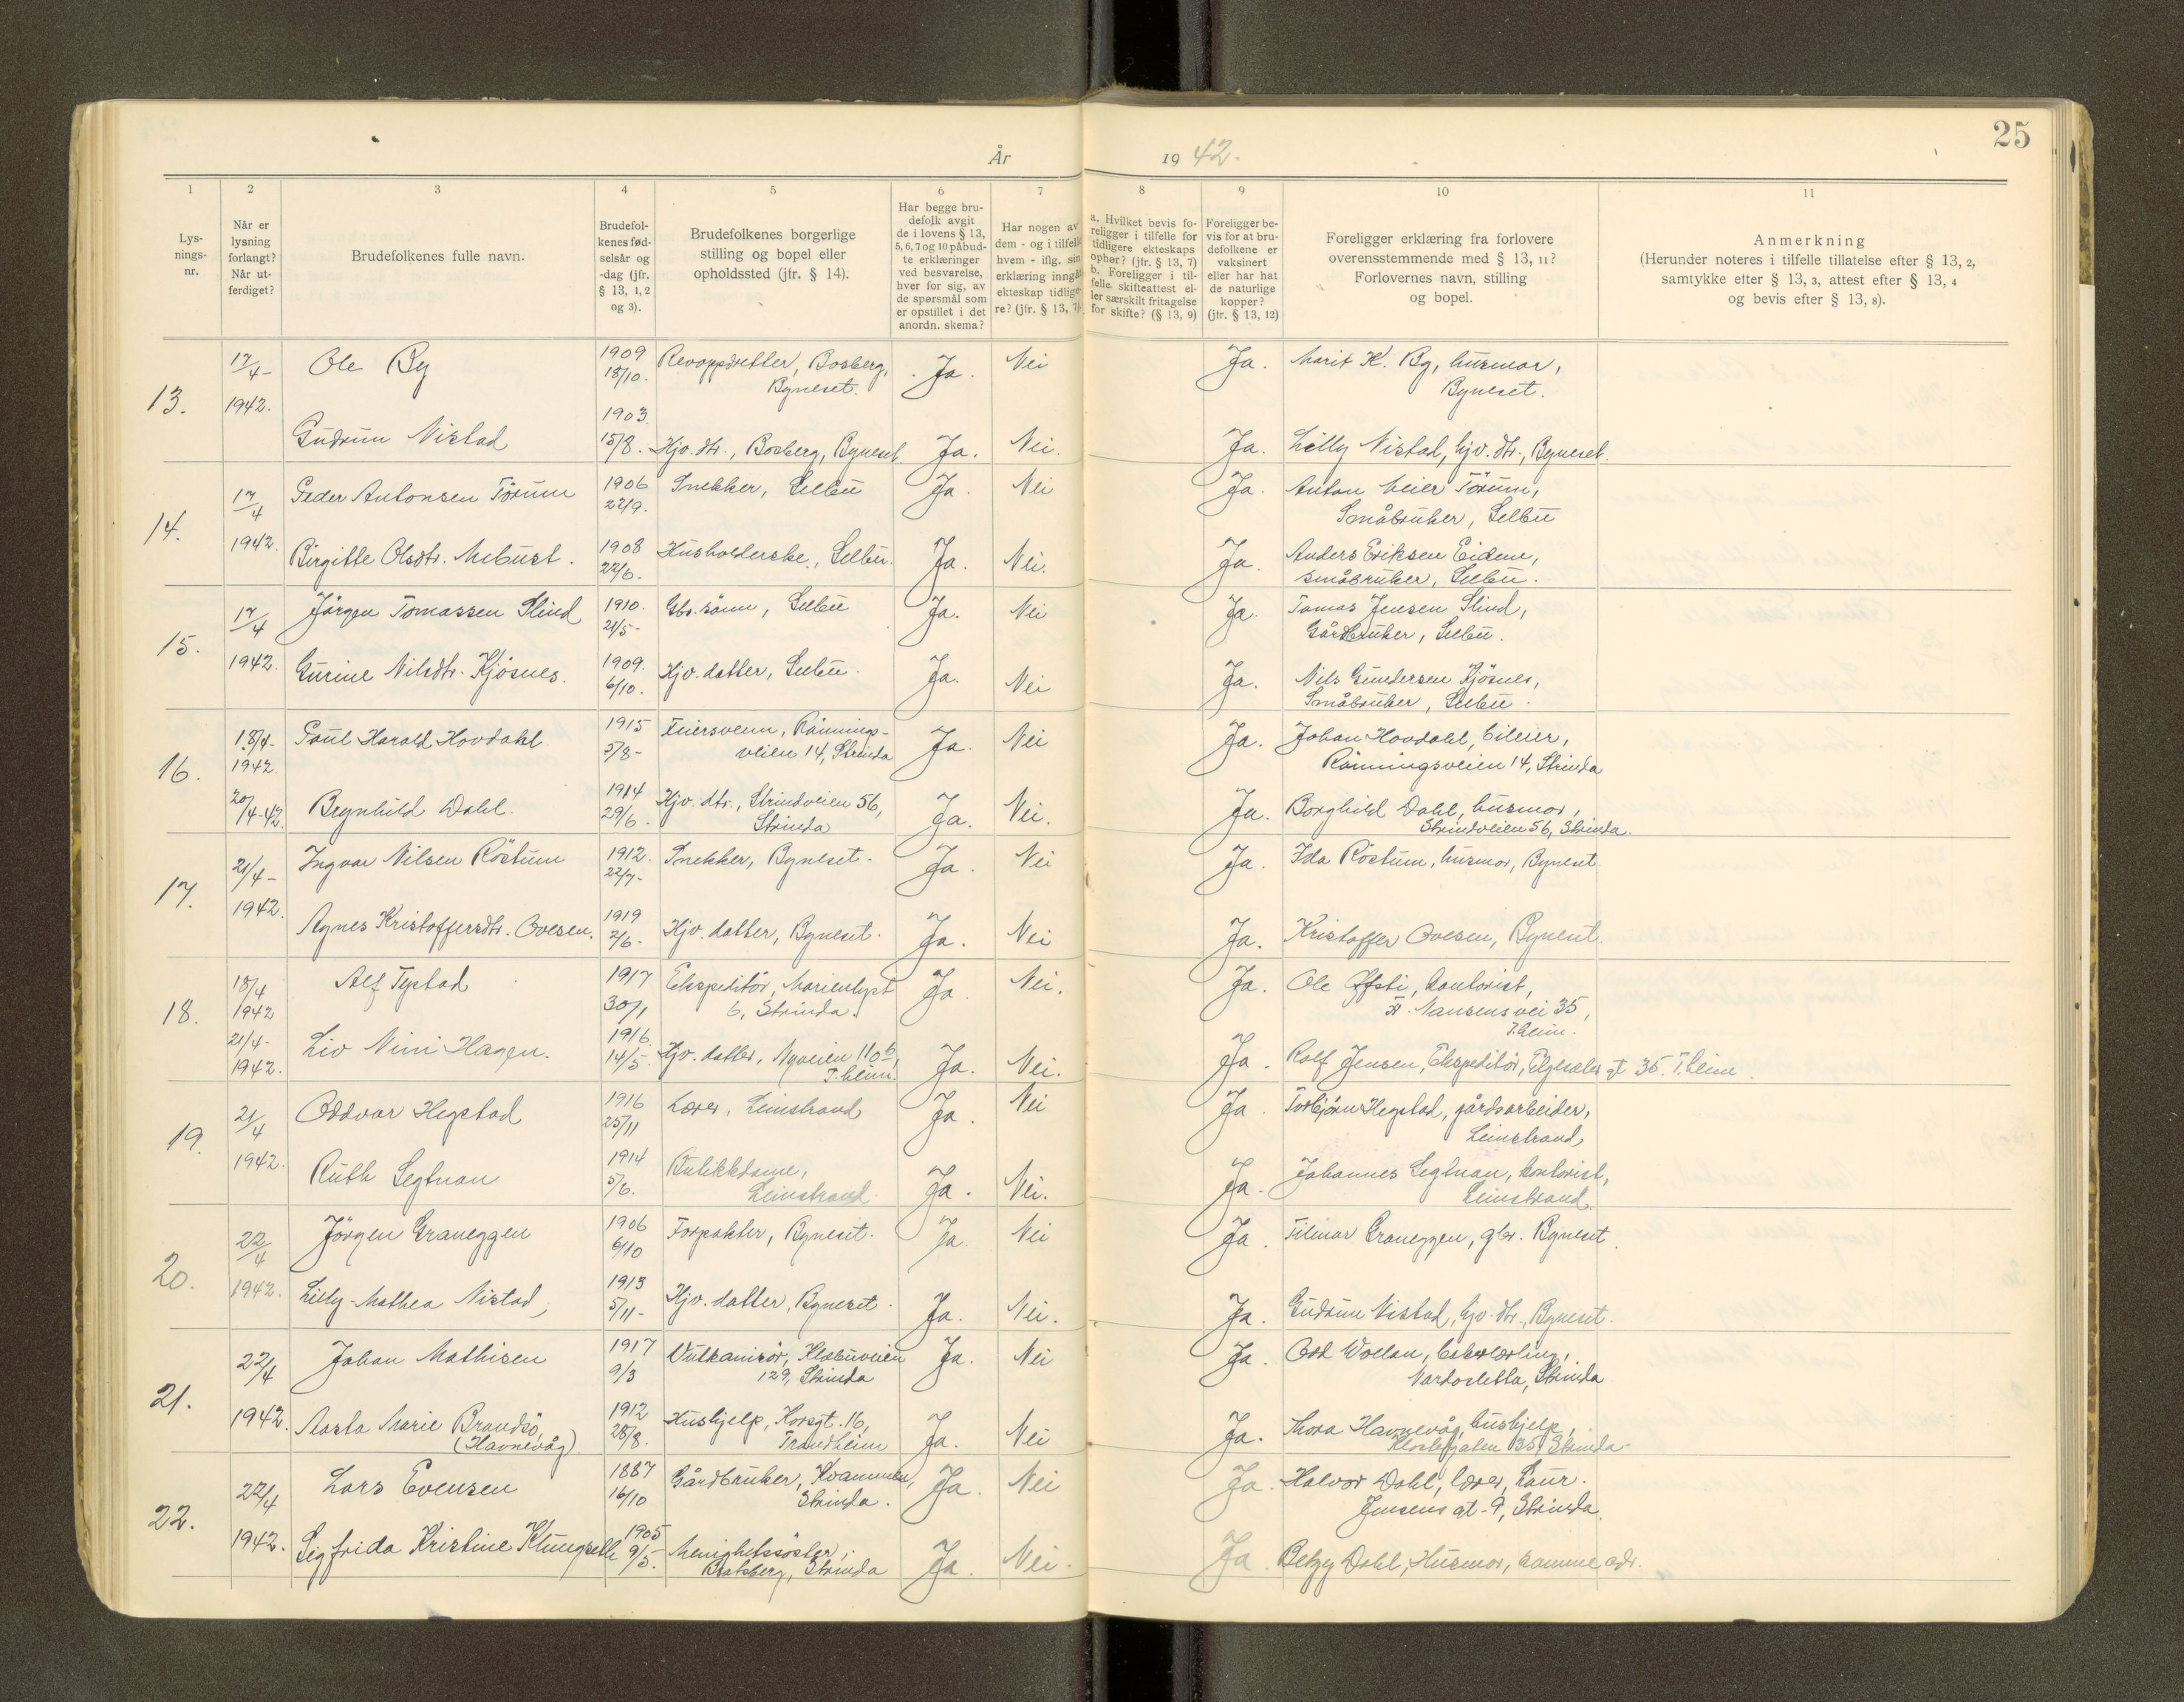 25
År 1942.
1 2 3 4 5 6 7 8 9 10 11
Lys-
nings-
nr.
Når er
lysning
forlangt?
Når ut-
ferdiget?
Brudefolkenes fulle navn.
Brudefol-
kenes fød-
selsår og
-dag (jfr.
§ 13, 1, 2
og 3).
Brudefolkenes borgerlige
stilling og bopel eller
opholdssted (jfr. § 14).
Har begge bru-
defolk avgit
de i lovens § 13,
5, 6, 7 og 10 påbud-
te erklæringer
ved besvarelse,
hver for sig, av
de spørsmål som
er opstillet i det
anordn. skema?
Har nogen av
dem - og i tilfelle
hvem - iflg. sin
erklæring inngåt
ekteskap tidlige-
re? (jfr. § 13, 7).
a. Hvilket bevis fo-
religger i tilfelle for
tidligere ekteskaps
ophør? (jfr. § 13, 7)
b. Foreligger i til-
felle skifteattest el-
ler særskilt fritagelse
for skifte? (§ 13, 9)
Foreligger be-
vis for at bru-
defolkene er
vaksinert
eller har hat
de naturlige
kopper?
(jfr. § 13, 12)
Foreligger erklæring fra forlovere
overensstemmende med § 13, 11?
Forlovernes navn, stilling
og bopel.
Anmerkning
(Herunder noteres i tilfelle tillatelse efter § 13, 2,
samtykke efter § 13, 3, attest efter § 13, 4
og bevis efter § 13, 8).
13.
17/4-
1942.
Ole By
1909
18/10.
Revoppdretter, Bosberg,
Byneset.
Ja.
Nei
Ja.
Marit K. By, husmor,
Byneset.
Gudrun Nistad
1903.
15/8.
Hjv. dtr., Bosberg, Byneset.
Ja.
Nei.
Ja.
Lilly Nistad, hjv. dtr., Byneset.
14.
17/4
1942.
Peder Antonsen Törum
1906
22/9.
Snekker, Selbu
Ja.
Nei
Ja.
Anton Meier Törum,
Småbruker, Selbu
Birgitte Olsdtr. Mebust.
1908
22/6.
Husholderske, Selbu.
Ja.
Nei.
Ja.
Anders Eriksen Eidem,
småbruker, Selbu.
15.
17/4
1942.
Jörgen Tomassen Slind
1910.
21/5-
Gbr. sönn, Selbu
Ja.
Nei
Ja.
Tomas Jensen Slind,
Gårdbruker, Selbu.
Gurine Nilsdtr. Kjösnes.
1909.
6/10.
Hjv. datter, Selbu.
Ja.
Nei
Ja.
Nils Gundersen Kjösnes,
Småbruker, Selbu.
16.
18/4-
1942
20/4-42.
Paul Harald Hovdahl
1915
5/8-
Feiersvenn, Rönnings-
veien 14, Strinda
Ja.
Nei
Ja.
Johan Hovdahl, bileier,
Rönningsveien 14, Strinda
Brynhild Dahl.
1914
29/6-
Hjv. dtr., Strindveien 56,
Strinda
Ja.
Nei.
Ja.
Borghild Dahl, husmor,
Strindveien 56, Strinda.
17.
21/4-
1942.
Ingvar Nilsen Röstum
1912.
22/7-
Snekker, Byneset.
Ja.
Nei
Ja.
Ida Röstum, husmor, Byneset.
Agnes Kristoffersdtr. Ovesen.
1919
2/6-
Hjv. datter, Byneset.
Ja.
Nei
Ja.
Kristoffer Ovesen, Byneset.
18.
18/4
1942
21/4-
1942.
Alf Tystad
1917
30/1
Ekspeditör, Marienlyst
6, Strinda.
Ja.
Nei.
Ja.
Ole Öfsti, kontorist,
Fr. Nansens vei 35,
T.heim.
Liv Nini Hagen.
1916.
14/5-
Hjv. datter, Nyveien 110 b,
T.heim.
Ja.
Nei.
Ja.
Rolf Jensen, Ekspeditör, Elgesæter gt 35. T.heim.
19.
21/4
1942.
Oddvar Hegstad
1916
25/11
Lærer, Leinstrand
Ja.
Nei
Ja.
Torbjörn Hegstad, gårdsarbeider,
Leinstrand
Ruth Segtnan
1914
5/6.
Butikkdame,
Leinstrand.
Ja.
Nei.
Ja.
Johannes Segtnan, kontorist,
Leinstrand.
20.
22/4
1942.
Jörgen Graneggen
1906
6/10
Forpakter, Byneset.
Ja.
Nei
Ja.
Tilmar Graneggen, gbr. Byneset.
Lilly-Mathea Nistad,
1913
5/11-
Hjv. datter, Byneset.
Ja.
Nei.
Ja.
Gudrun Nistad, hjv. dtr., Byneset.
21.
22/4
1942.
Johan Mathisen
1917
9/3
Vulkanisör, Klæbuveien
129, Strinda
Ja.
Nei
Ja.
Odd Wollan,
Nardosletta, Strinda
Aasta Marie Brandsö,
(Havnevåg)
1912
28/8.
Hushjelp, Korsgt. 16,
Trondheim
Ja.
Nei
Ja.
Thora Havnevåg, hushjelp,
Klostergaten 35, Strinda.
22.
22/4
1942.
Lars Evensen
1887
16/10
Gårdbruker, Kvammen,
Strinda.
Ja.
Nei
Ja.
Halvor Dahl, lærer, Laur.
Jensens gt. 9, Strinda.
Sigfrida Kristine Klungseth
1905
9/5-
Menighetssöster,
Bratsberg, Strinda
Ja.
Nei.
Ja.
Betzy Dahl, Husmor, samme adr.